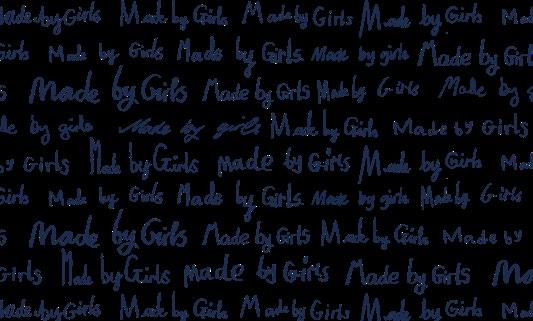 Made by Girls Made by Girls Made by Girls Made by Girls Mad
Girls Made by Girls Made by Girls Made by girls Made by Girl
s Made by Girls Made by Girls Made by Girls Made by g
de by girls Made by girls Made by Girls Made by Girls
by Girls Made by Girls made by Girls Made by Girls Mad
Girls Made by Girls Made by Girls Made by girls Made by Girls
s Made by Girls Made by Girls Made by Girls Made by
Girls Made by Girls made by Girls Made by Girls Ma
Made by Girls Made by Girls Made by Girls Made by Girls Mad